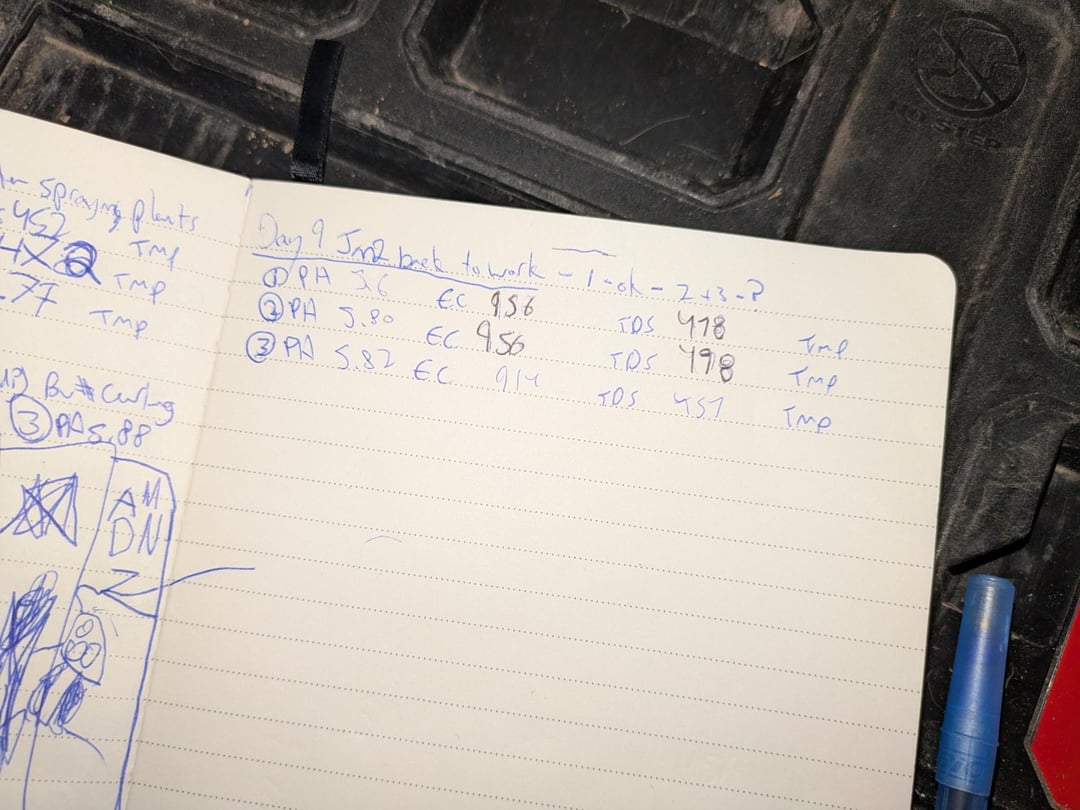 spraying plants
452 Tmp
Tmp
.77 Tmp
But Curling
③ PH 5.88
AM
DN
Day 9 Jn2 back to work - 1 - ok - 2 + 3 - ?
① PH 5.6 EC 956 TDS 478 Tmp
② PH 5.80 EC 956 TDS 498 Tmp
③ PH 5.82 EC 914 TDS 457 Tmp
NO STEP